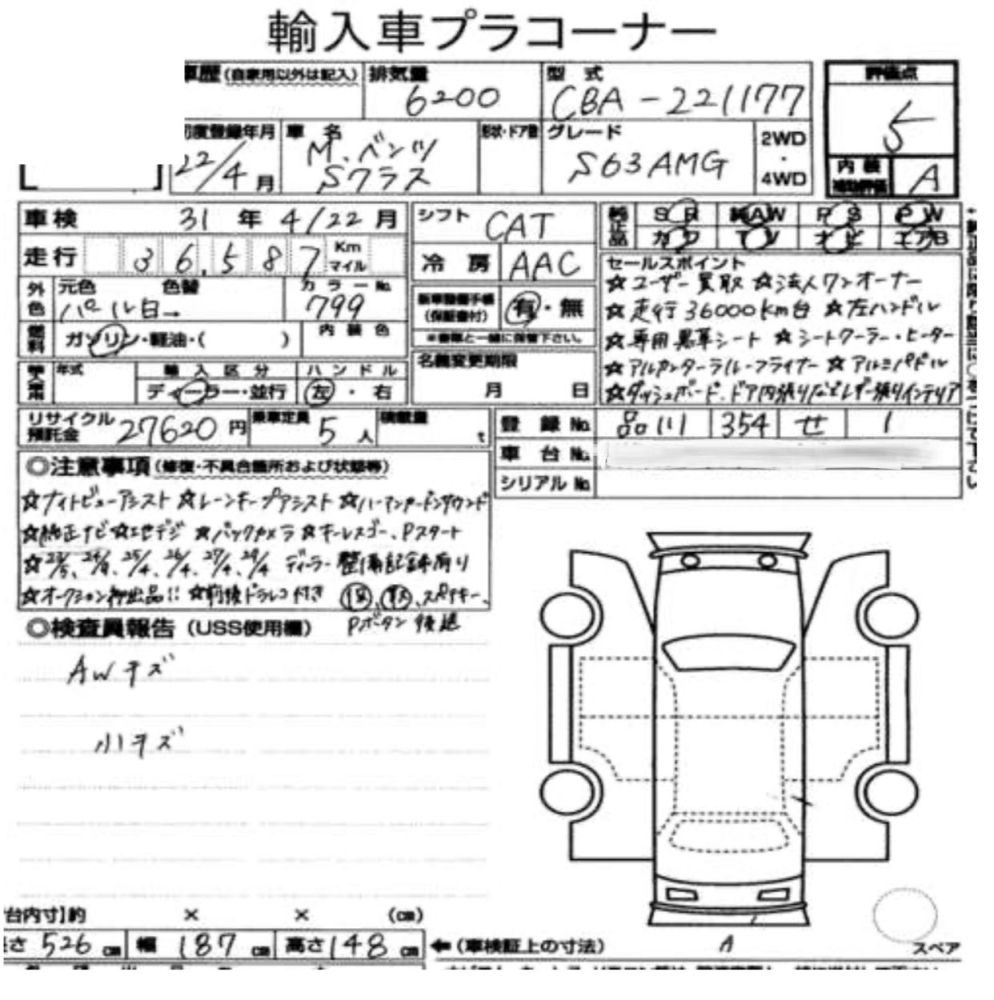 輸入車プラコーナー
車歴(自家用以外は記入) 排気量 型式 評価点
6200 CBA-221177 5
初度登録年月 車名 形状・ドア数 グレード 2WD・4WD 内装補助評価
22/4月 M.ベンツ Sクラス S63AMG A
車検 31年4/22月 シフト CAT 純正品 SR 純AW PS PW
カワ TV ナビ エアB
走行 36,587 Km マイル 冷房 AAC
外色 元色 色替 カラーNo.
パール白→ 799
新車整備手帳(保証書付) 有・無
※書類と一緒に保管下さい。
燃料 ガソリン・軽油・( ) 内装色
年式 輸入区分 ハンドル
ディーラー・並行 左・右
名義変更期限
月 日
セールスポイント
☆ユーザー買取 ☆法人ワンオーナー
☆走行36000km台 ☆左ハンドル
☆専用黒革シート ☆シートクーラー・ヒーター
☆アルカンターラルーフライナー ☆アルミパドル
☆ダッシュボード、ドア内張りなどレザー張りインテリア
リサイクル預託金 27620円 乗車定員 5人 積載量 t
登録No. 品川 354 せ 1
車台No.
シリアルNo.
◎注意事項(修復・不具合箇所および状態等)
☆ナイトビューアシスト ☆レーンキープアシスト ☆ハーマンカードンサウンド
☆純正ナビ ☆地デジ ☆バックカメラ ☆キーレスゴー、Pスタート
☆23/5、24/4、25/4、26/4、27/4、28/4 ディーラー整備記録有り
☆オークション初出品!! ☆前後ドラレコ付き 保、取、スペアキー、
Pボタン後送
◎検査員報告(USS使用欄)
AWキズ
小キズ
台内寸]約 × × (cm)
長さ 526cm 幅 187cm 高さ 148cm ←(車検証上の寸法) A スペア